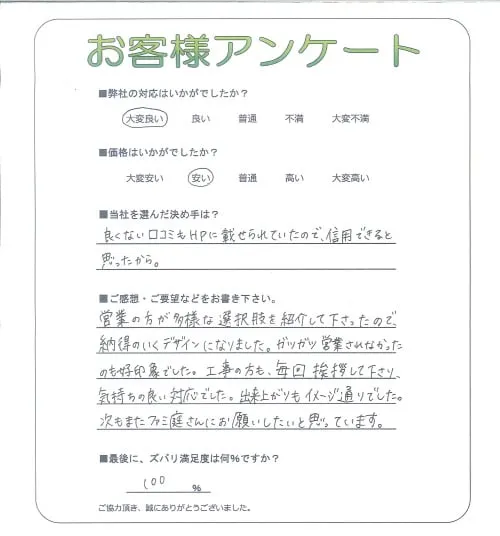 お客様アンケート
■弊社の対応はいかがでしたか？
大変良い 良い 普通 不満 大変不満
■価格はいかがでしたか？
大変安い 安い 普通 高い 大変高い
■当社を選んだ決め手は？
良くない口コミもHPに載せられていたので、信用できると
思ったから。
■ご感想・ご要望などをお書き下さい。
営業の方が多様な選択肢を紹介して下さったので、
納得のいくデザインになりました。ガツガツ営業されなかった
のも好印象でした。工事の方も、毎回挨拶して下さり、
気持ちの良い対応でした。出来上がりもイメージ通りでした。
次もまたファミ庭さんにお願いしたいと思っています。
■最後に、ズバリ満足度は何％ですか？
100 %
ご協力頂き、誠にありがとうございました。